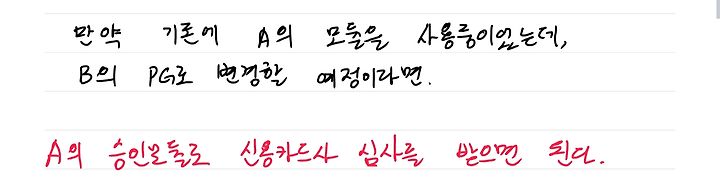 만약 기존에 A의 모듈을 사용중이었는데,
B의 PG로 변경할 예정이라면.
A의 승인모듈로 신용카드사 심사를 받으면 된다.